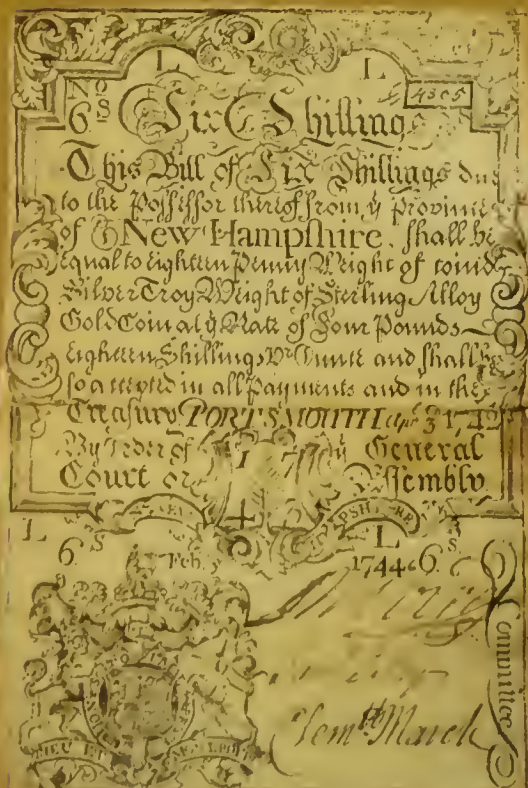 L L
No 4305
6S Six Shillings
This Bill of Six Shillings due
to the Possessor thereof from ye Province
of New-Hampshire. shall be
equal to eighteen Penny Weight of coind
Silver Troy Weight of Sterling Alloy
Gold Coin at ye Rate of Four Pounds
eighteen Shillings Pr Ounce and shall be
so accepted in all Payments and in the
Treasury PORTSMOUTH Apr 3 1742
By Order of ye General
Court or Assembly
L L
6S Feb. 1744 6S
Committee
Clemt March